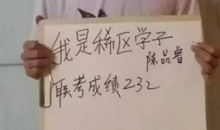 我是稀区学子
陈品睿
联考成绩232